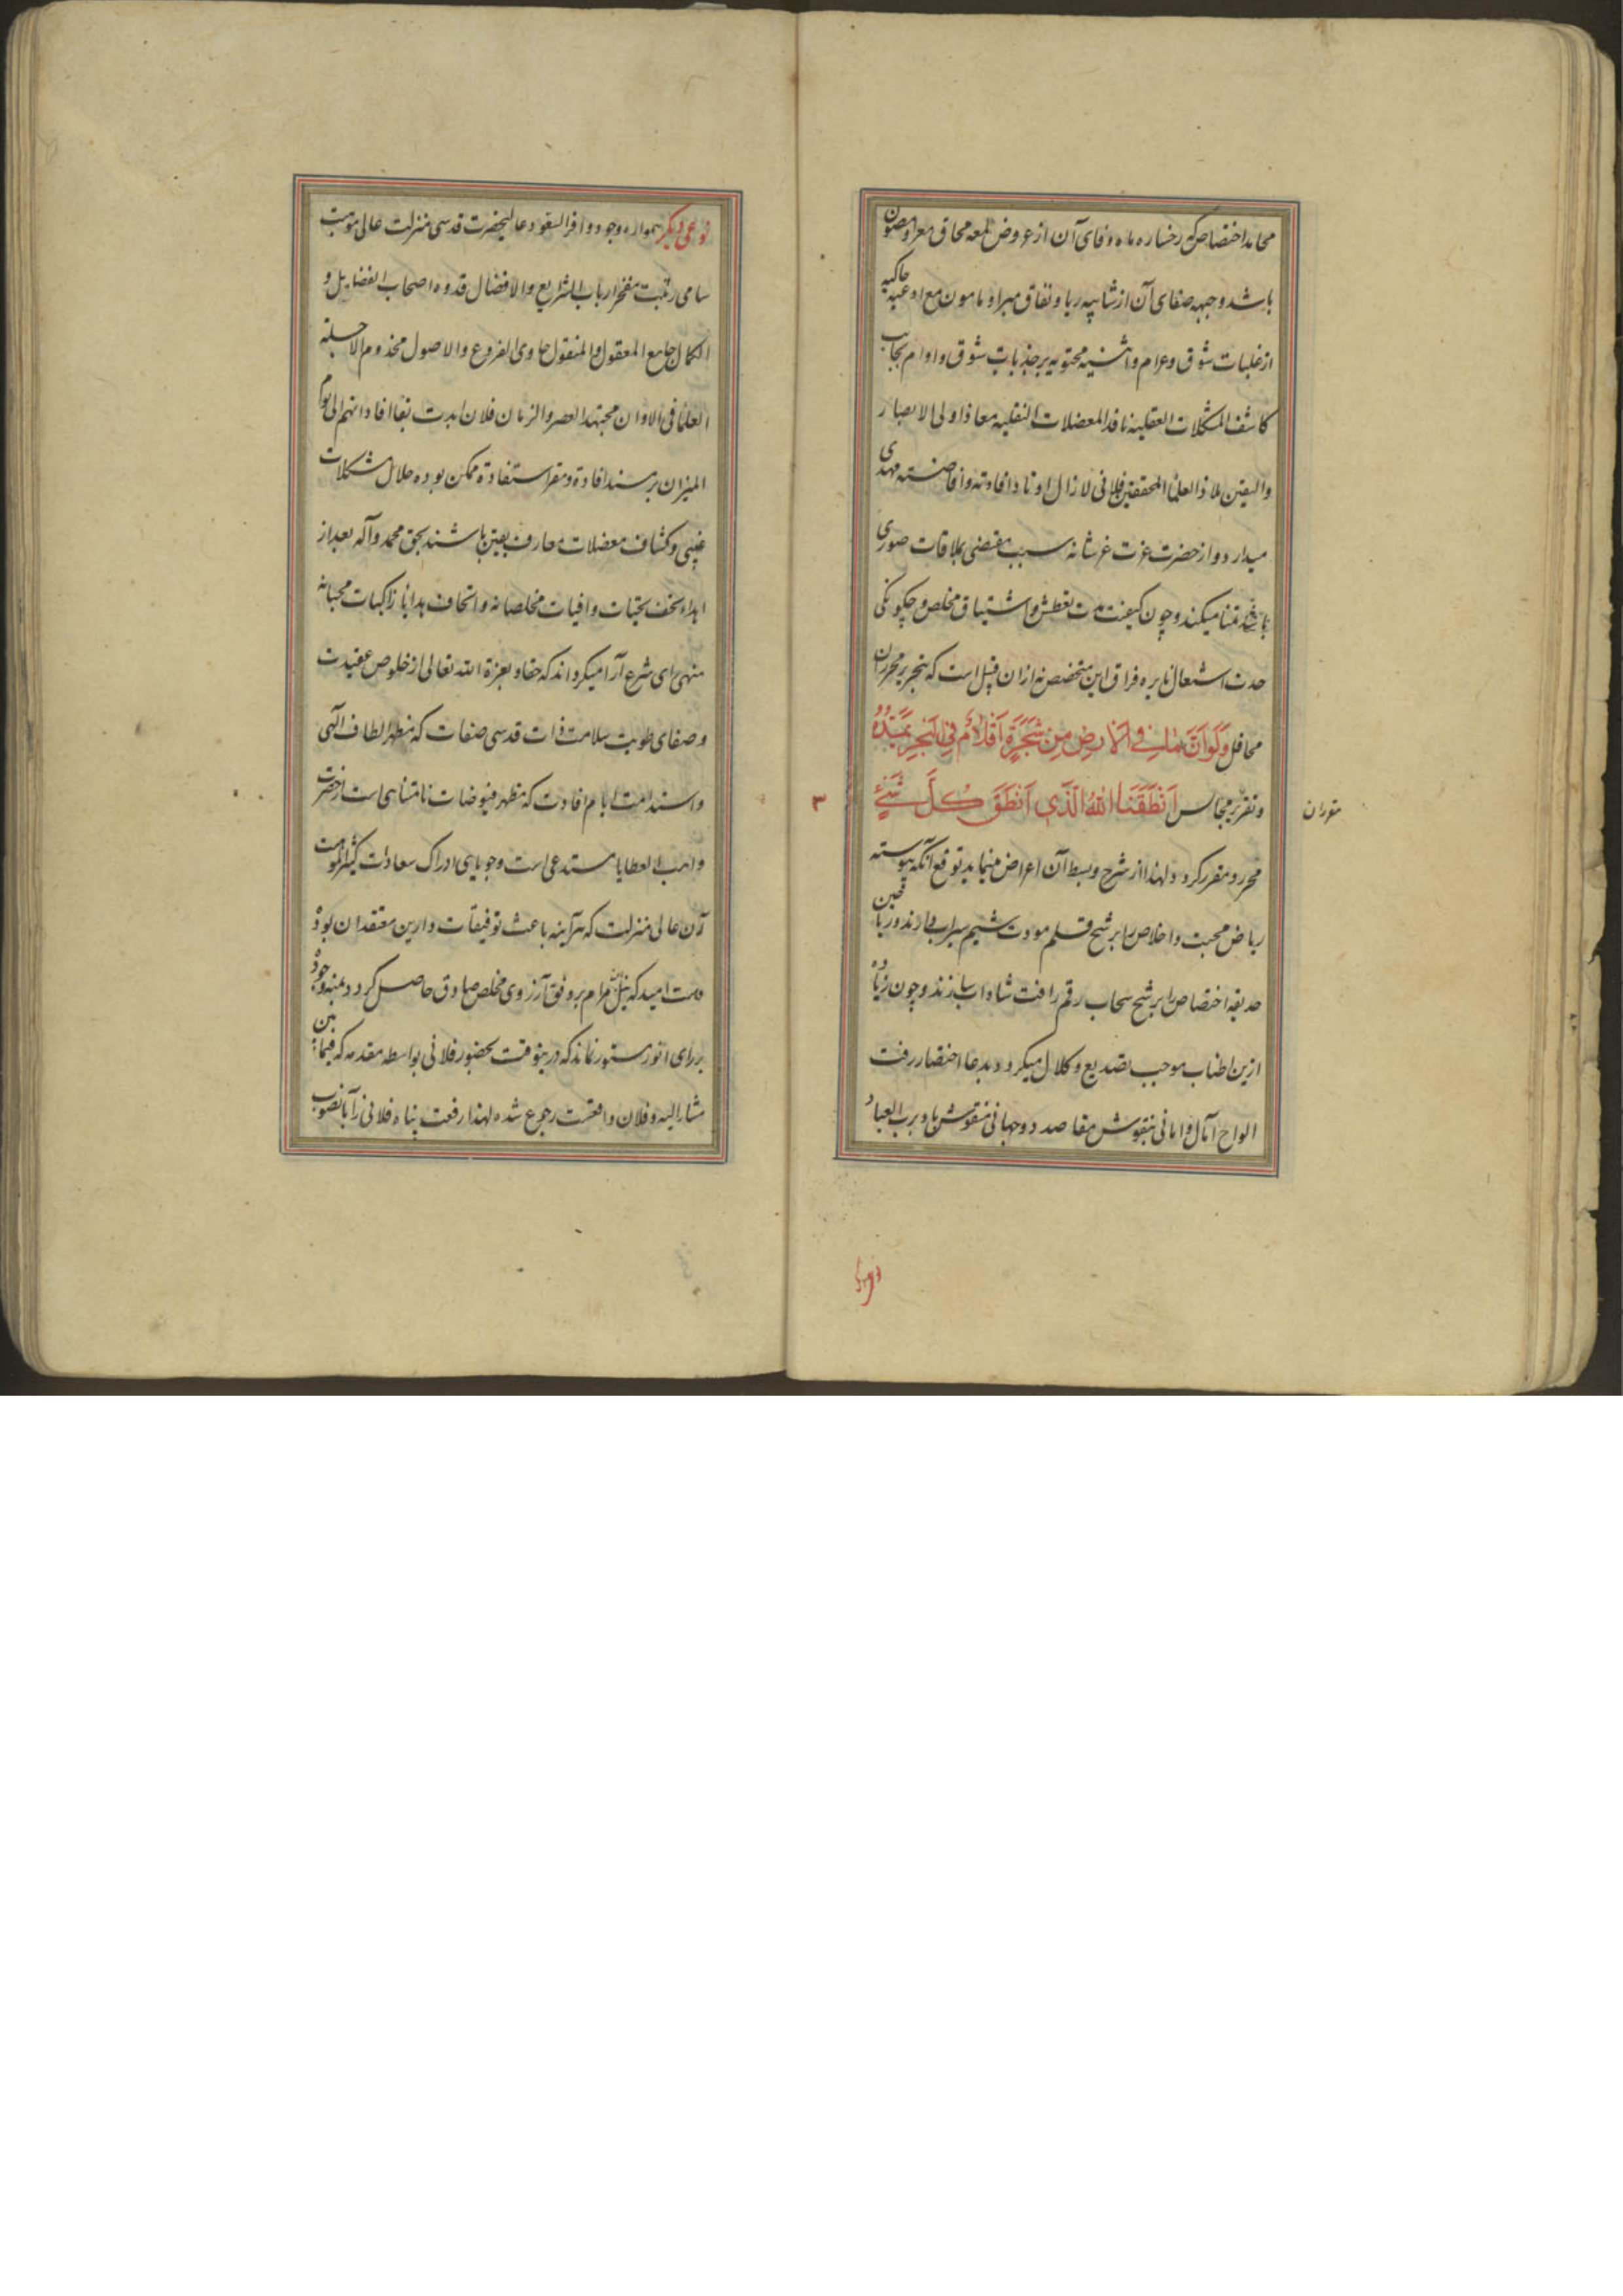 محامد اختصاص که رخساره ماه وفای آن از عروض لمعه محاق معرا و مصون
باشد وجبهه صفای آن از شایبه ریا و نفاق مبرا و مامون مع ادعیه حاکیه
از غلبات شوق و غرام و اثنیه محتویه بر جذبات شوق و اوام بجانب
کاشف المشکلات العقلیه ناقد المعضلات النقلیه معاذ اولی الابصار
والیقین ملاذ العلماء المحققین فلانی لا زال اوتاد افادته و افاضته مهدی
میدارد و از حضرت عزت عز شانه سبب مقتضی ملاقات صوری
باشد تمنا میکند و چون کیفیت مدت تعطش و اشتیاق مخلص و چگونگی
حدت اشتعال نایره فراق این متخصص نه از ان قبیل است که بتحریر محرران
محافل وَلَوْ اَنَّ مٰا فِی الْاَرْضِ مِنْ شَجَرَةٍ اَقْلَامٌ وَالْبَحْرُ یَمُدُّهُ
و تقریر مجالس اَنْطَقَنَا اللّٰهُ الَّذِی اَنْطَقَ کُلَّ شَیْءٍ
مقرران
۳
محرر و مقرر کردد لهذا از شرح و بسط آن اعراض مینماید توقع آنکه پیوسته
ریاض محبت و اخلاص را برشح قلم مودت شیم سیراب دارند و ریاحین
حدیقه اختصاص را برشح سحاب رقم رافت شاداب سازند و چون زیاده
ازین اطناب موجب تصدیع و کلال میکردد بدعا اختصار رفت
الواح آمال و امانی بنقوش مقاصد دوجهانی منقوش باد برب العباد
نوعی دیگر همواره وجود وافر السعود عالیحضرت قدسی منزلت عالی موهبت
سامی رتبت مفخر ارباب الشرایع والافضال قدوه اصحاب الفضایل و
الکمال جامع المعقول والمنقول حاوی الفروع والاصول مخدوم الاجلة
العلماء فی الاوان مجتهد العصر والزمان فلان ابدت بقا افاداتهم الی یوم
المیزان بر مسند افادة و مقر استفادة ممکن بوده حلال مشکلات
غیبی و کشاف معضلات معارف یقین باشند بحق محمد و آله بعد از
اهداء تحف تحیات وافیات مخلصانه و اتحاف هدایا زاکیات محبانه
منهی رای شرع آرا میکرداند که حقا و بعزة الله تعالی از خلوص عقیدت
و صفای طویت سلامت ذات قدسی صفات که مظهر الطاف الهی
و استدامت ایام افادت که مظهر فیوضات نامتناهی است از حضرت
واهب العطایا مستدعی است و جویایی ادراک سعادت کثیر الموهبت
آن عالی منزلت که هرآینه باعث توفیقات دارین معتقدان بود
هست امید که نیل مرام بر وفق آرزوی مخلص صادق حاصل کردد بمنه وجوده
بر رای انور مستور نماند که درینوقت بحضور فلانی بواسطه مقدمه که فیما بین
مشار الیه و فلان واقعست رجوع شده لهذا رفعت پناه فلانی را آنصوب